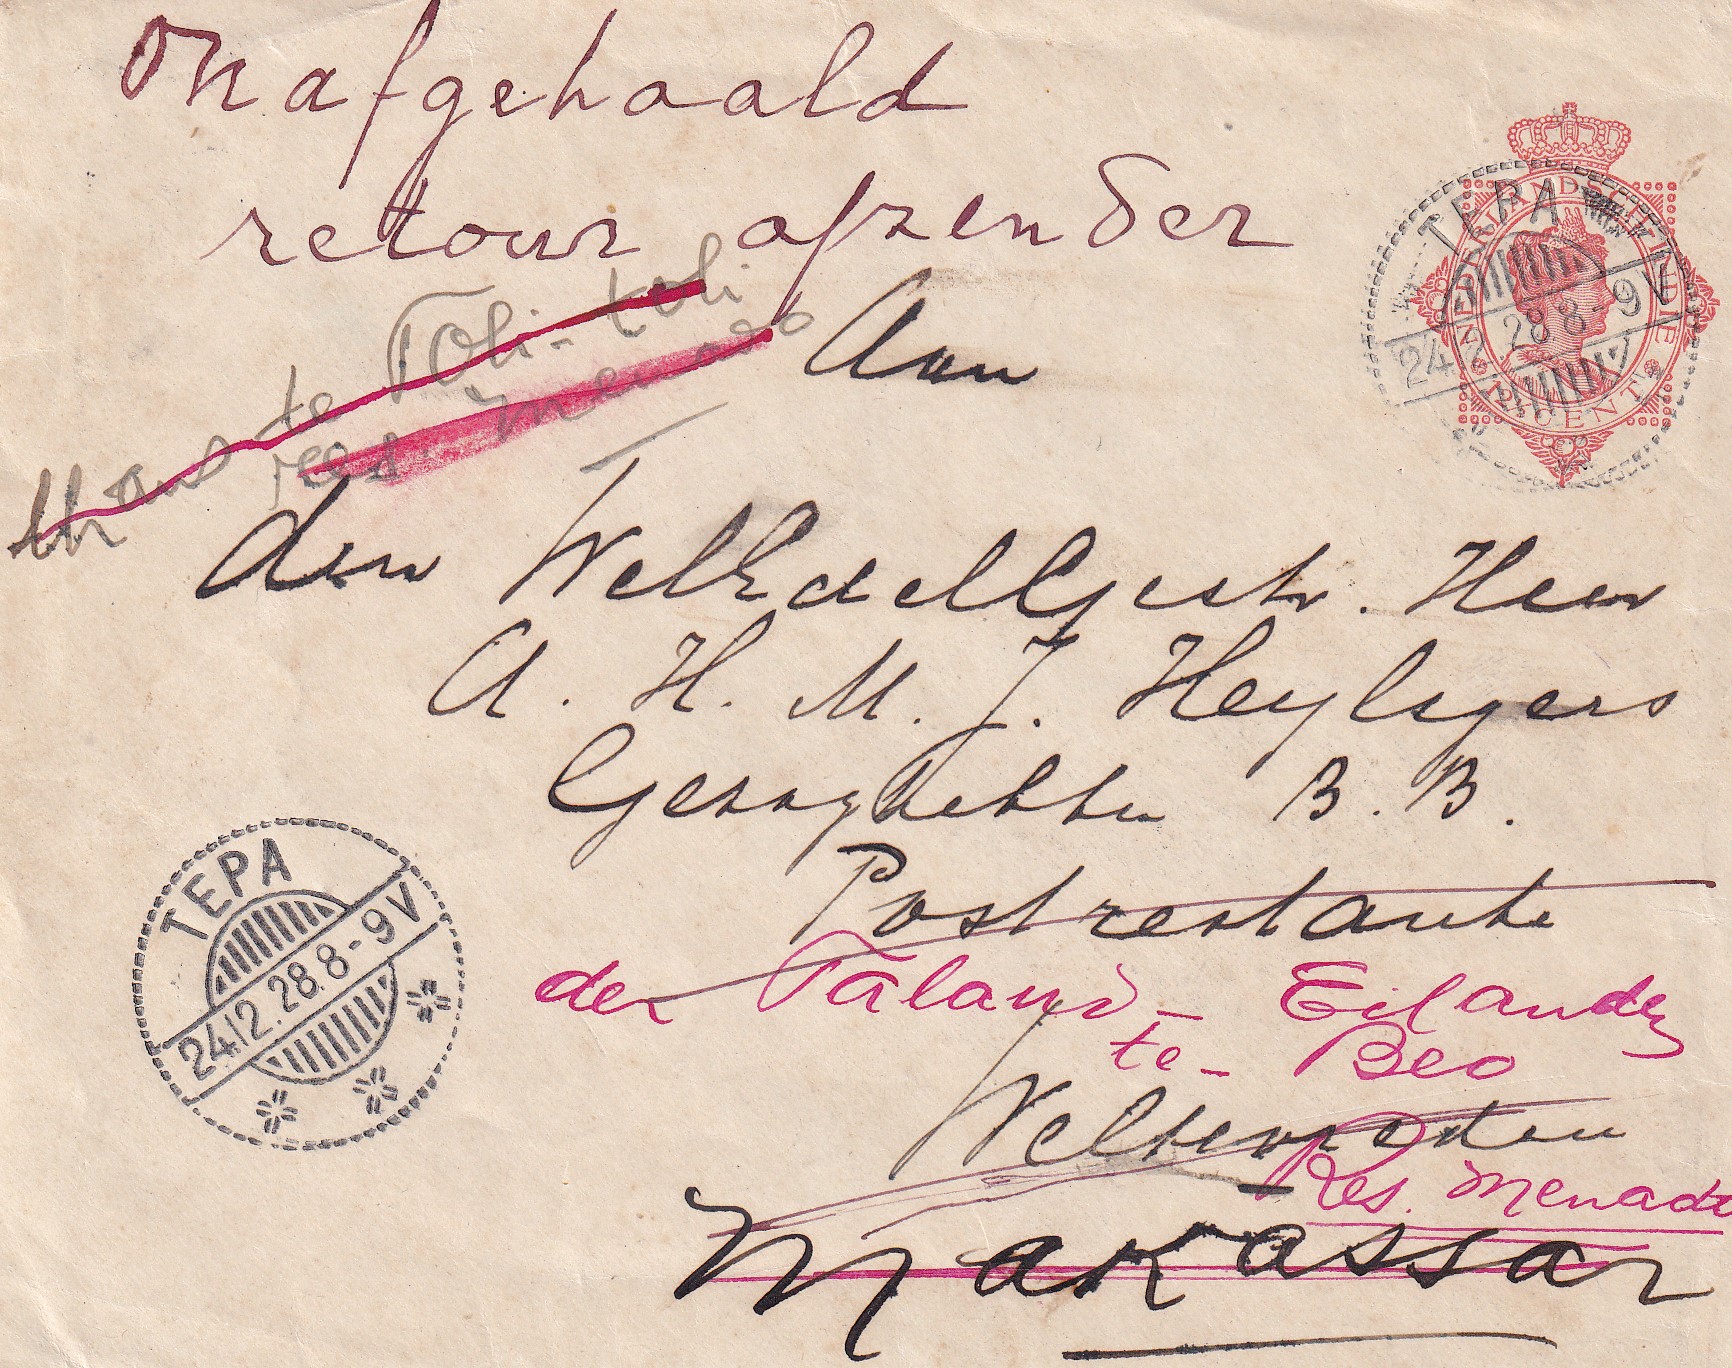 Onafgehaald
retour afzender
thans te Toli-toli
res. Menado
Aan
den WelEdelGestr. Heer
A. H. M. J. Heylsgers
Gezaghebber B. B.
Postrestante
der Talaud-Eilanden
te- Beo
Weltevreden
Res. Menado
Makassar
NEDERLANDSCH INDIE
CENT
TEPA
24.2.28.8-9V
TEPA
24.12.28.8-9V